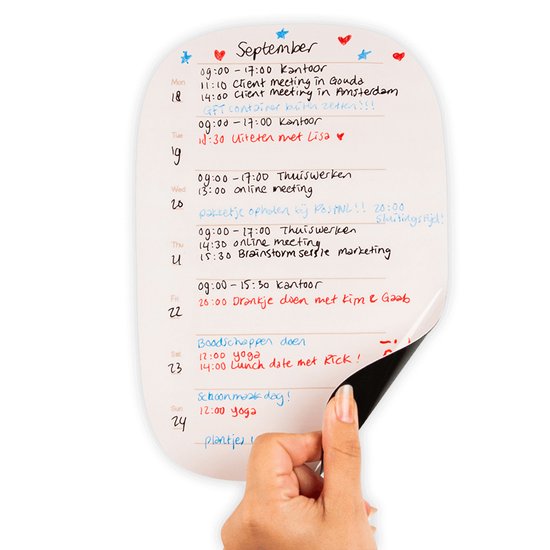 September
Mon 18
09:00 - 17:00 Kantoor
11:10 Client meeting in Gouda
14:00 Client meeting in Amsterdam
GFT container buiten zetten!!!
Tue 19
09:00 - 17:00 Kantoor
18:30 Uiteten met Lisa
Wed 20
09:00 - 17:00 Thuiswerken
13:00 online meeting
pakketje ophalen bij PostNL!! 20:00
Sluitingstijd!
Thu 21
09:00 - 17:00 Thuiswerken
14:30 online meeting
15:30 Brainstorm sessie marketing
Fri 22
09:00 - 15:30 Kantoor
20:00 Drankje doen met Kim & Gaab
Sat 23
Boodschappen doen
12:00 yoga
14:00 Lunch date met Rick!
Sun 24
Schoonmaakdag!
12:00 yoga
plantjes